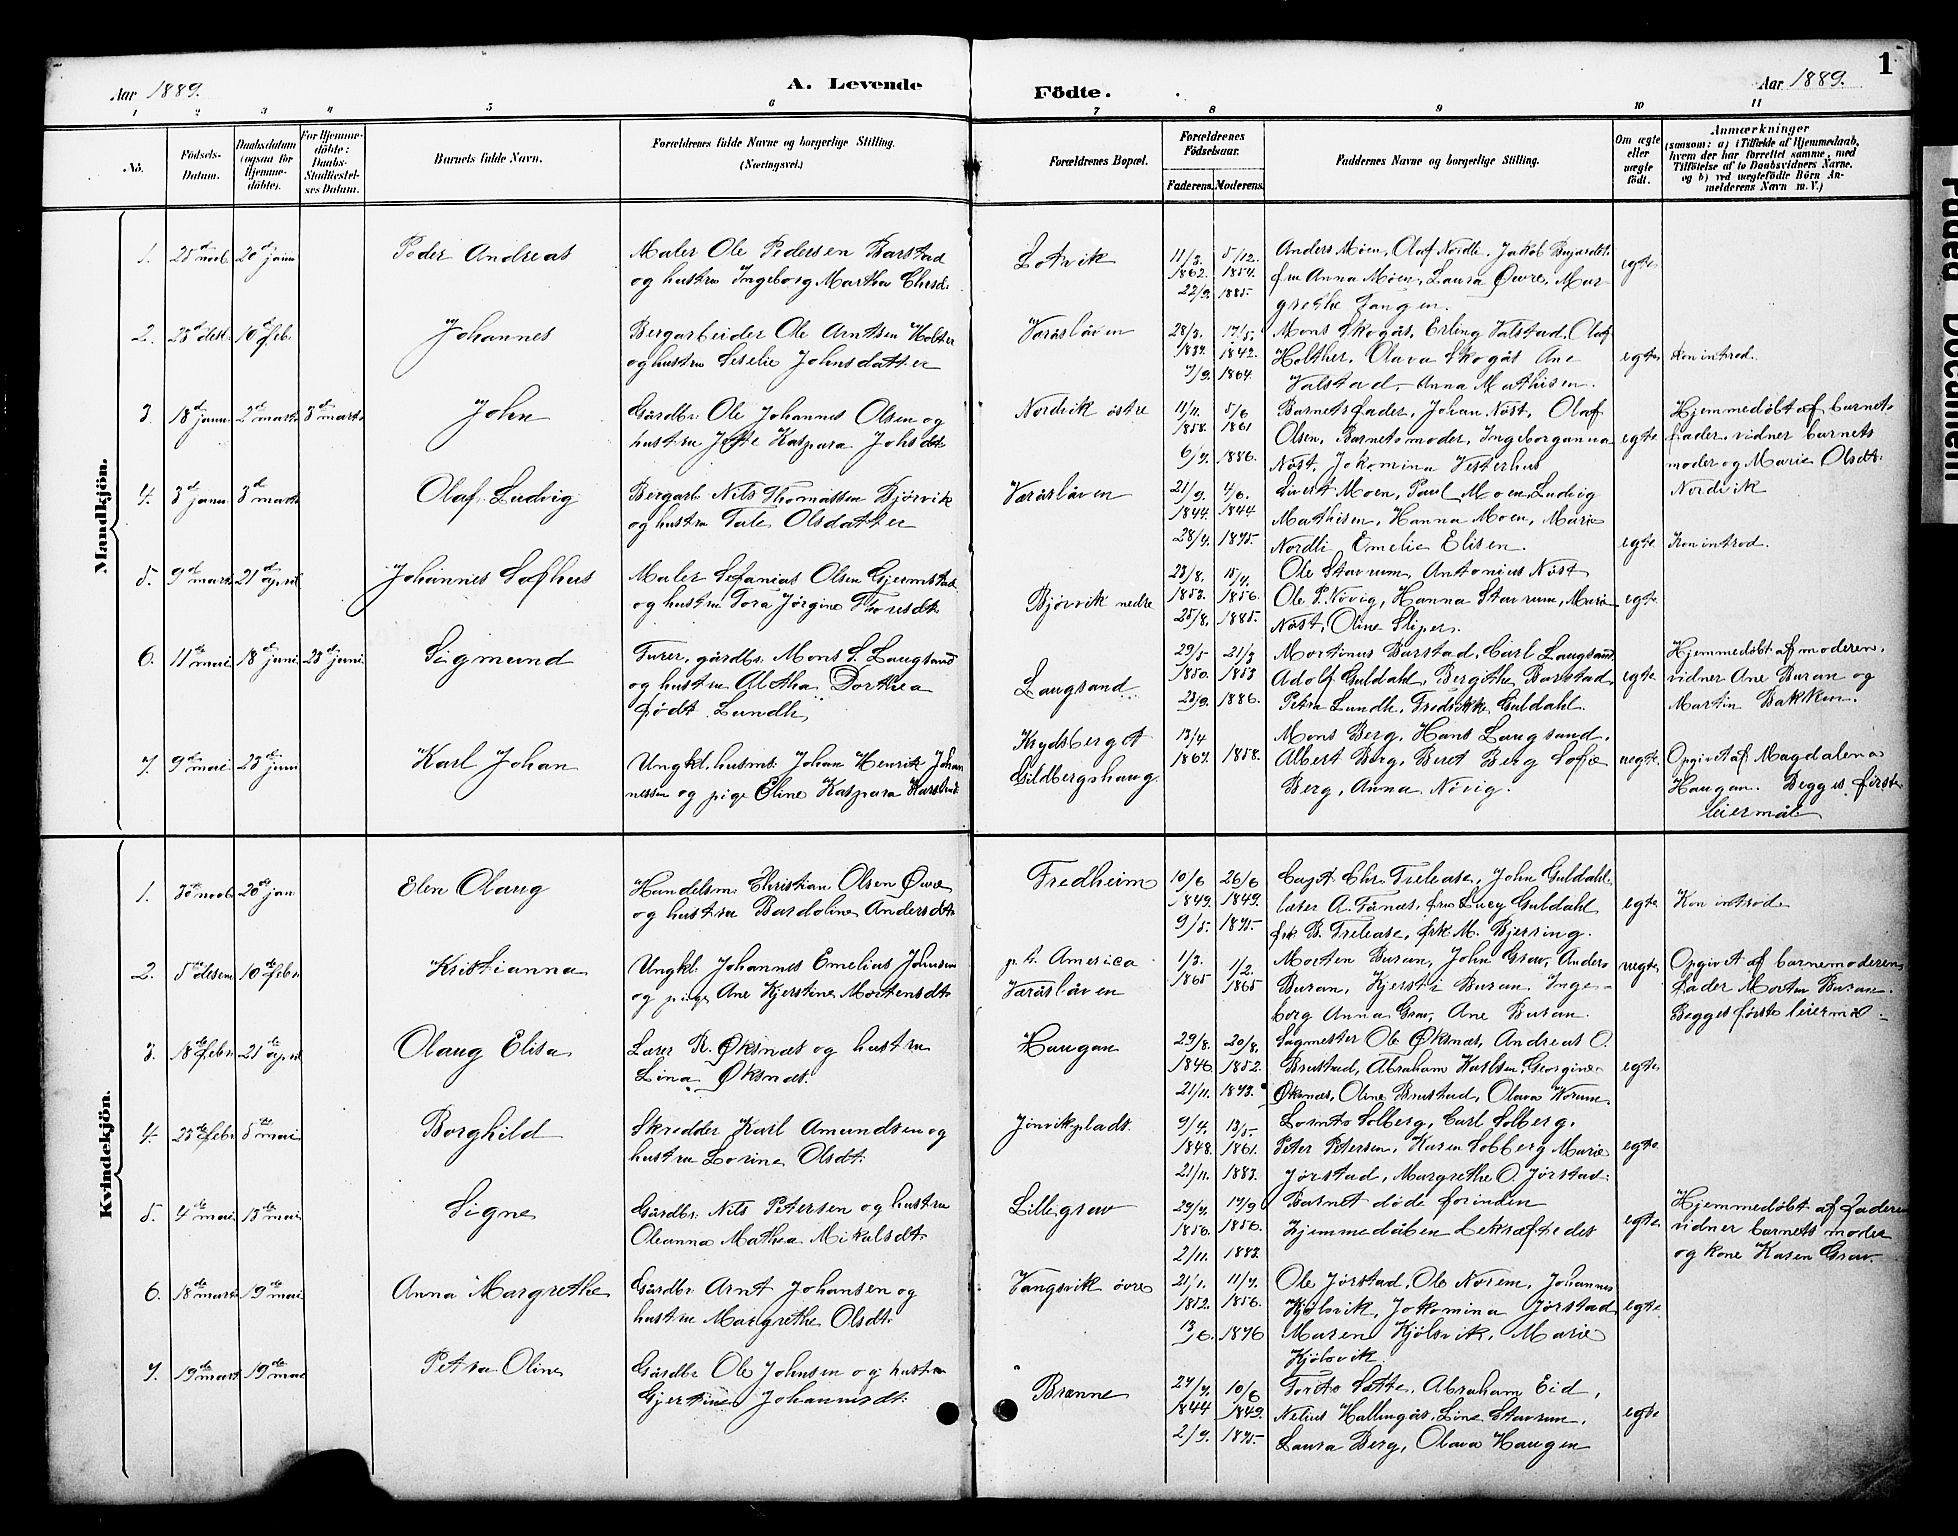 1
Aar 1889.
A. Levende
Födte.
Aar 1889.
1 2 3 4 5 6 7 8 9 10 11
No.
Födsels-
Datum.
Daabsdatum
(ogsaa for
Hjemme-
döbte).
For Hjemme-
döbte:
Daabs-
Stadfæstel-
ses Datum.
Barnets fulde Navn.
Forældrenes fulde Navne og borgerlige Stilling.
(Næringsvei.)
Forældrenes Bopæl.
Forældrenes
Födselsaar.
Faderens. Moderens.
Faddernes Navne og borgerlige Stilling.
Om ægte
eller
uægte
födt.
Anmærkninger
(saasom: a) i Tilfælde af Hjemmedaab,
hvem der har forrettet samme, med
Tilföielse af to Daabsvidners Navne,
og b) ved uægtefödte Börn An-
melderens Navn m. V.)
Mandkjön.
1. 25d novb. 20d janu Peder Andreas
Maler Ole Pedersen Barstad
og hustru Ingeborg Martha
Lotvik
11/3. 1862. 5/12. 1854.
22/9. 1885.
Anders Moen, Olaf Nordli, Jakob
fru Anna Moen, Laura Øvre, Mar-
grethe Fangen.
egte
2. 25d desb. 10d feb. Johannes
Bergarbeider Ole Arntsen Holter
og hustru Seselie Johnsdatter
Varåslåven
28/3. 17/5. 1842.
7/9. 1864.
Mons Skogås, Erling Valstad, Olaf
Holther, Olava Skogås Ane
Valstad, Anna Mathisen.
egte
Kon introd.
3. 18d janu. 2d marts 3d marts John
Gårdbr. Ole Johannes Olsen og
hustru Kaspara Johsdt
Nordvik östre
11/11. 1858. 5/6 1861
6/7. 1886.
Barnets fader, Johan Nöst, Olaf
Olsen, Barnets moder, Ingeborganna
Nöst, Jokomina Vesterhus
egte
Hjemmedøbt af barnets
fader. vidner barnets
moder og Marie Olsdt.
Nordvik
4. 3d janu 3d marts Olaf Ludvig
Bergarb. Nils Thomassen Bjørvik
og hustru Olsdatter
Varåslåven
21/9. 1844. 4/6. 1844
28/7. 1875.
Sivert Moen, Paul Moen, Ludvig
Mathisen, Hanna Moen, Marie
Nordli Emelie Elisen.
egte
Kon introd.
5. 9d marts 21d april Johannes Sofhus
Maler Sefanias Olsen Gjermstad
og hustru Tora Jørgine Thoresdt.
Bjørvik nedre
23/8. 1853. 15/7. 1856.
25/8. 1885.
Ole Stavrum, Antonius Nöst
Ole P. Növig, Hanna Stavrum, Marie
Nöst, Oline Sliper.
egte
6. 11te mai 18d juni 23d juni. Sigmund
Furer, gårdbr. Mons S. Laugsand
og hustru Aletha Dorthea
født Lundh
Laugsand
29/5 1850. 21/3 1853
23/9. 1886.
Martinus Barstad, Carl Laugsand.
Adolf Guldahl, Bergithe Barstad,
Petra Lundh, Fredrikke Guldahl.
egte
Hjemmedøbt af moderen.
vidner Ane Buran og
Martin Bakken.
7. 9d mai 23d juni Karl Johan
Ungkl. husms. Johan Henrik Johan
nessen og pige Eline Kaspara
Krydsberget
Gildbergshaug.
13/4 1867. 1858.
Mons Berg, Hans Laugsand.
Albert Berg, Beret Berg Sofie
Berg, Anna Növig.
uegte
Opgivet af Magdalena
Haugan. Begges først
leiermål
Kvindekjön.
1. 30te novb. 20de jan Elen Olaug
Handelsm. Christian Olsen Øvre
og hustru Bardoline Andersdt.
Fredheim
10/6 1849. 26/6 1849.
9/5. 1875.
Capt Chr. Trelease, John Guldahl
læser A. Tånæs, fru Lucy Guldahl
frk B. Trelease, frk M. Bjerring.
egte
Kon introd
2. 5te desem 10de febr. Kristianna
Ungkl. Johannes Emelius Johnsen
og pige Ane Kjerstine Mortensdt.
p. t. America
Varåslåven
1/3. 1865 1/2. 1865
Morten Buran, John Grav, Anders
Buran, Kjersti Buran Inge-
borg Anna Grav, Ane Buran.
uegte
Opgivet af barnemoderens
fader Morten Buran.
Begges første leiermål -
3. 18de febr. 21de april Olaug Elisa
Lærer R. Øksnæs og hustru
Lina Øksnæs.
Haugan
29/8. 1846 20/8. 1852.
21/11. 1873.
Sagmester Ole Øksnæs, Andreas O.
Brustad, Abraham Karlsen, Georgine
Øksnæs, Oline Brustad, Olava Norum.
egte
4. 25de febr. 5te mai Borghild
Skredder Karl Amundsen og
hustru Lovine Olsdt.
Jørvikplads.
9/7. 1848. 13/5. 1861.
21/11. 1883.
Lorntz Solberg, Carl Solberg.
Peter Petersen, Karen Solberg Marie
Jørstad, Margrethe O. Jørstad.
egte
5. 4de mai 13de mai Signe
Gårdbr. Nils Petersen og hustru
Oleanna Mathea Mikalsdt.
Lillegrav
29/7. 1856. 17/9 1856.
2/11. 1882.
Barnet døde forinden
hjemmedåben bekræftedes
egte
Hjemmedøbt af faderen
vidner barnets moder
og kone Karen Grav.
6. 18de marts 19de mai Anna Margrethe
Gårdbr. Arnt Johansen og
hustru Margrethe Olsdt.
Vangsvik övre
21/1. 1852. 11/7. 1856.
13/6. 1876
Ole Jørstad, Ole Norem, Johannes
Kjølsvik, Jokomina Jørstad,
Maren Kjølsvik, Marie
Kjølsvik.
egte
7. 19de marts 19de mai Petra Oline
Gårdbr Ole Johnsen og hustru
Gjertine Johannesdt.
Brænne
27/7. 1844 10/6 1849.
2/9. 1875.
Sotte, Abraham Eid,
Nelius Hallingås, Line Stavrum.
Laura Berg, Olava Haugen
egte
Faded Document